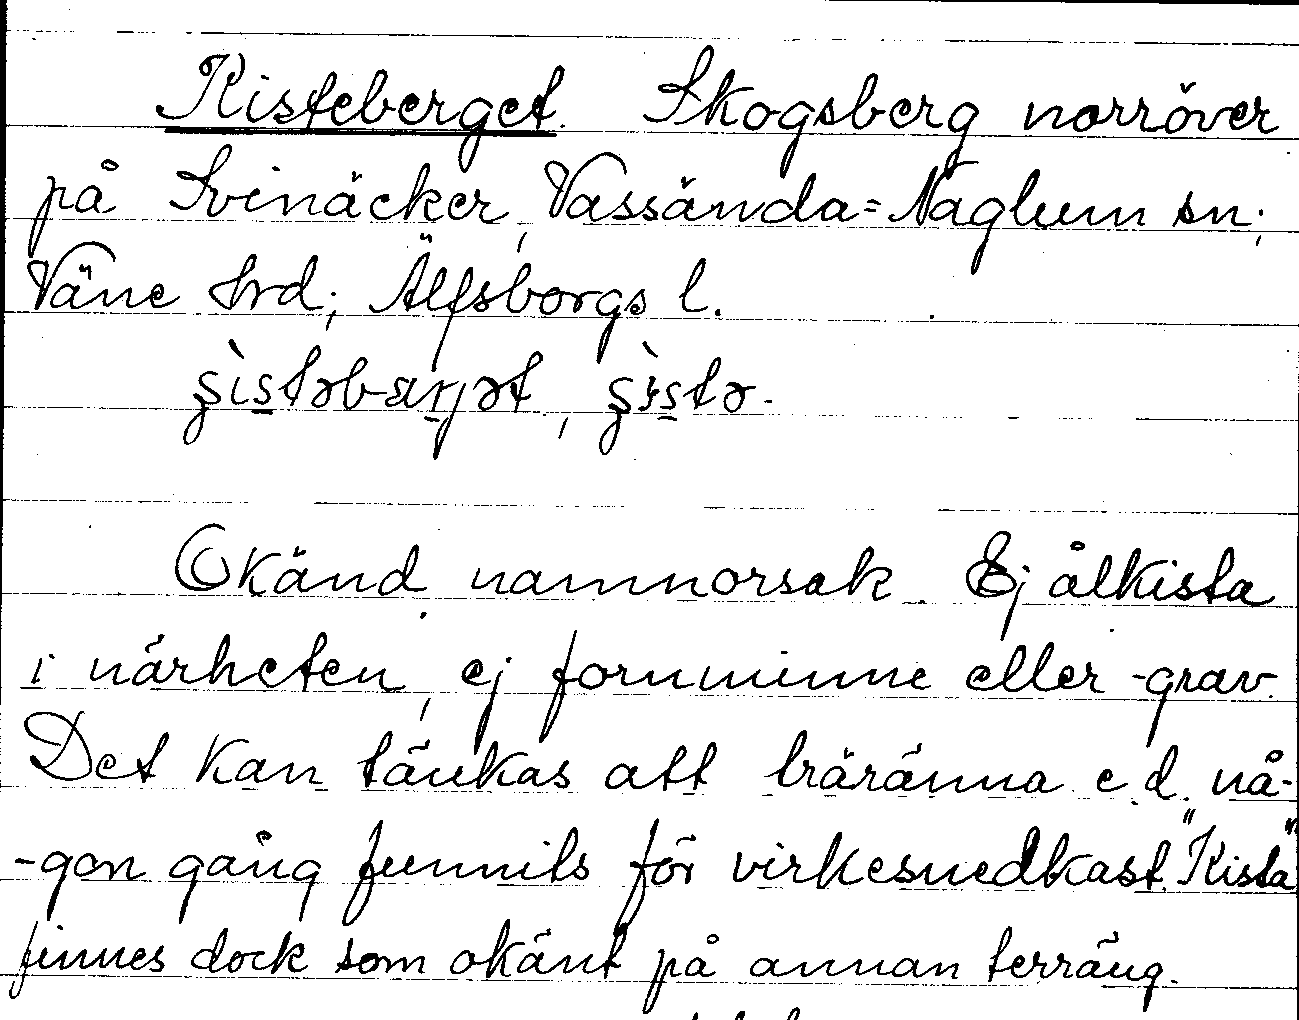 Kisteberget. Skogsberg norröver
på Svinäcker, Vassända=Naglum sn;
Väne hrd; Älfsborgs l.
Okänd namnorsak. Ej ålkista
i närheten, ej fornminne eller -grav.
Det kan tänkas att träränna e.d. nå-
-gon gång funnits för virkesnedkast. "Kista"
finnes dock som okänt på annan terräng.